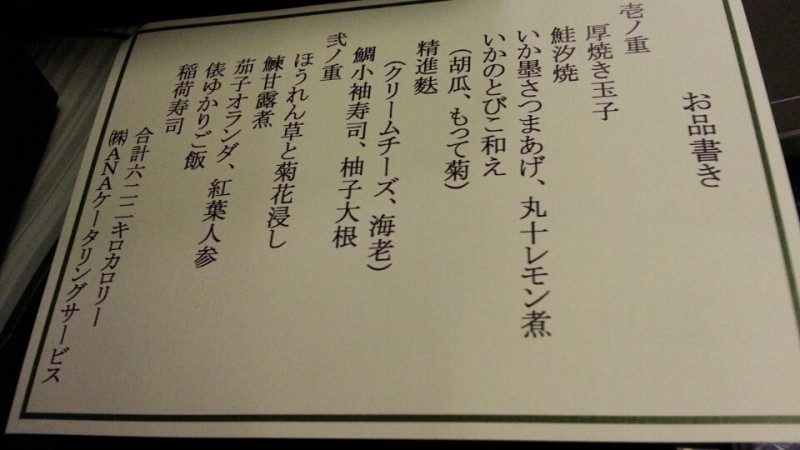 お品書き
壱ノ重
厚焼き玉子
鮭汐焼
いか墨さつまあげ、丸十レモン煮
いかのとびこ和え
（胡瓜、もって菊）
精進麩
（クリームチーズ、海老）
鯛小袖寿司、柚子大根
弐ノ重
ほうれん草と菊花浸し
鰊甘露煮
茄子オランダ、紅葉人参
俵ゆかりご飯
稲荷寿司
合計六二二キロカロリー
㈱ＡＮＡケータリングサービス